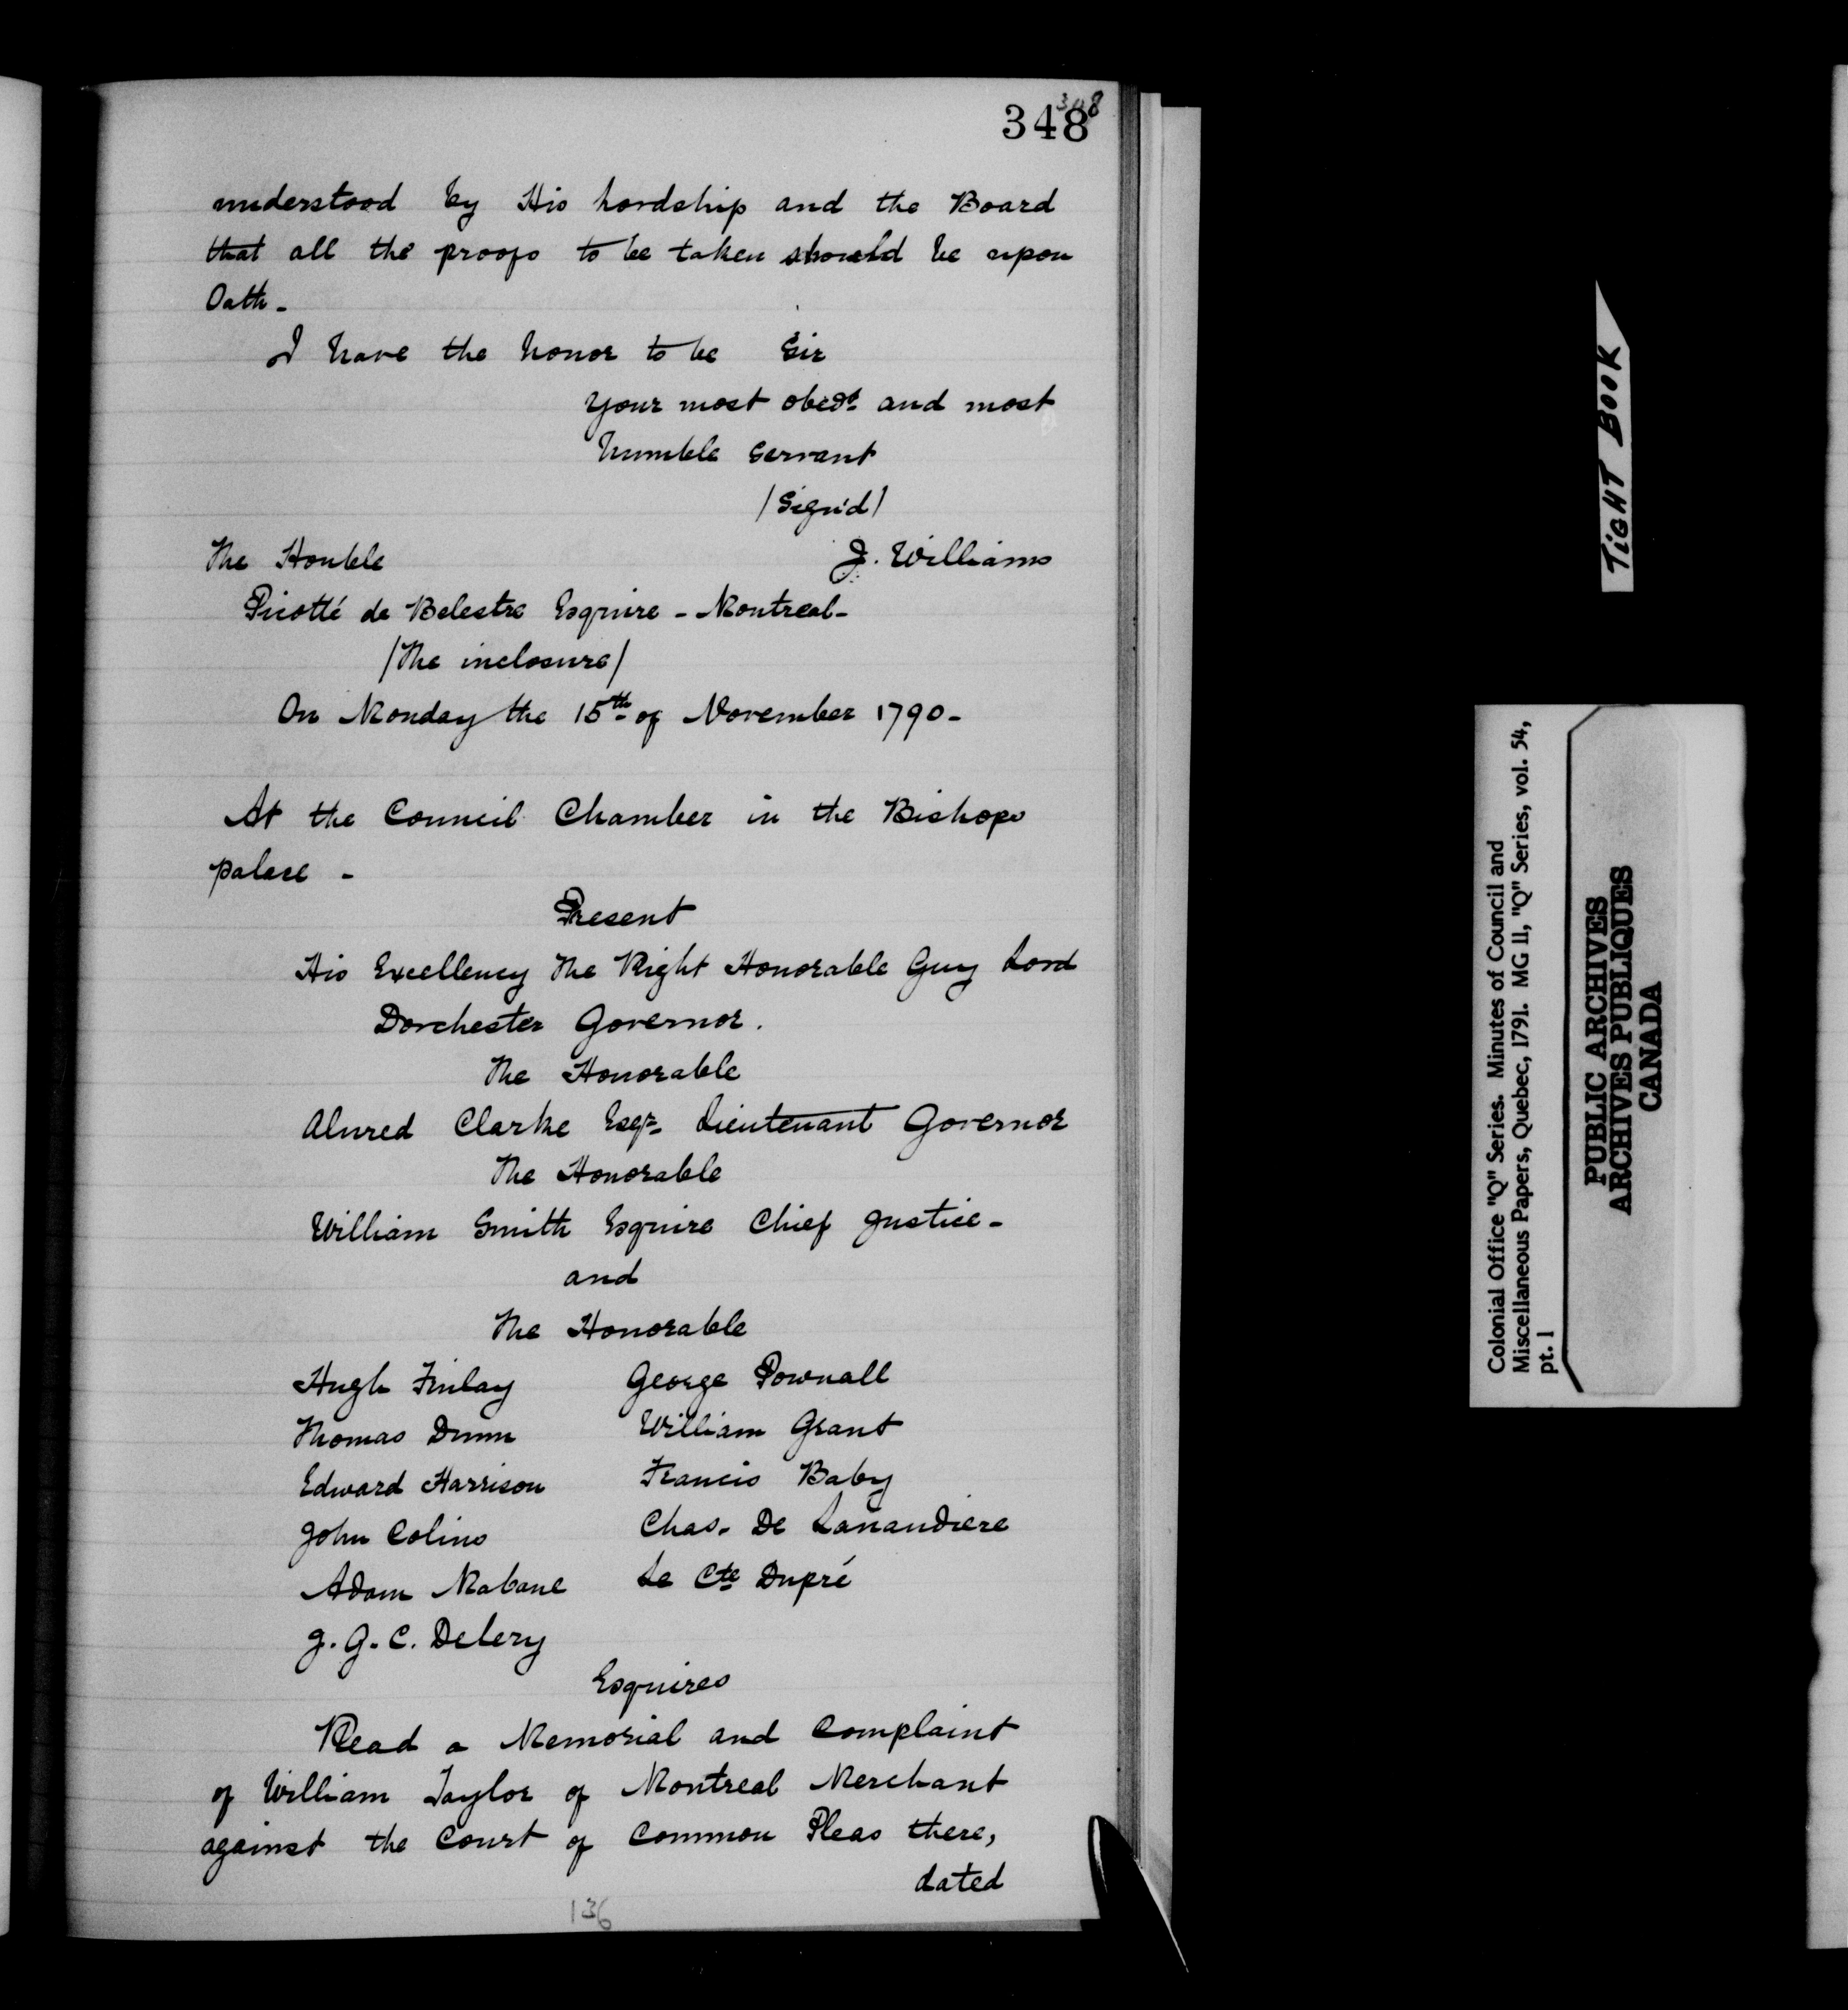 348
348
understood by His Lordship and the Board
that all the proofs to be taken should be upon
Oath -
I have the honor to be Sir
your most obedt and most
humble servant
/Sign'd/
The Honble J. Williams
Picotté de Belestre Esquire - Montreal -
/The inclosure/
On Monday the 15th of November 1790 -
At the Council Chamber in the Bishops
palace -
Present
His Excellency The Right Honorable Guy Lord
Dorchester Governor.
The Honorable
Alured Clarke Esqr. Lieutenant Governor
The Honorable
William Smith Esquire Chief Justice -
and
The Honorable
Hugh Finlay George Pownall
Thomas Dunn William Grant
Edward Harrison Francis Baby
John Colins Chas. De Lanandiere
Adam Mabane Le Cte Dupré
J. G. C. Delery
Esquires
Read a Memorial and Complaint
of William Taylor of Montreal Merchant
against the Court of Common Pleas there,
dated
136
TIGHT BOOK
Colonial Office "Q" Series. Minutes of Council and
Miscellaneous Papers, Quebec, 1791. MG 11, "Q" Series, vol. 54,
pt. 1
PUBLIC ARCHIVES
ARCHIVES PUBLIQUES
CANADA